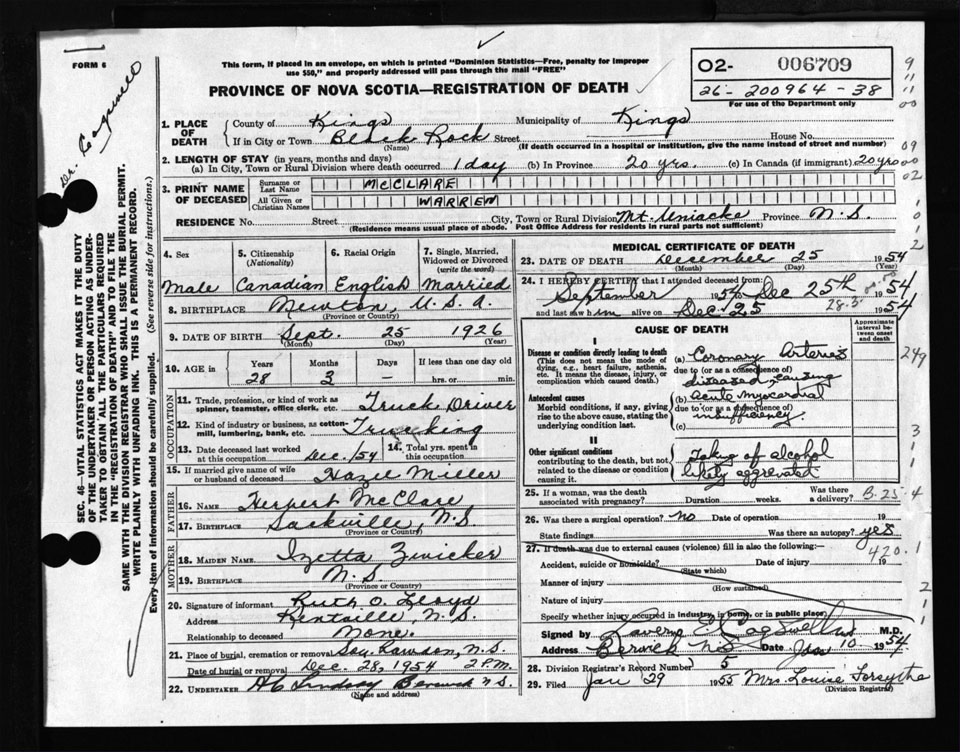 FORM 6
Dr. Cogswell
This form, if placed in an envelope, on which is printed "Dominion Statistics—Free, penalty for improper
use $50," and properly addressed will pass through the mail "FREE"
PROVINCE OF NOVA SCOTIA—REGISTRATION OF DEATH
02- 006709
26-200964-38
For use of the Department only
SEC. 46—VITAL STATISTICS ACT MAKES IT THE DUTY
OF THE UNDERTAKER OR PERSON ACTING AS UNDER-
TAKER TO OBTAIN ALL THE PARTICULARS REQUIRED
IN THE "REGISTRATION OF DEATH" AND TO FILE THE
SAME WITH THE DIVISION REGISTRAR WHO SHALL ISSUE THE BURIAL PERMIT.
WRITE PLAINLY WITH UNFADING INK. THIS IS A PERMANENT RECORD.
Every item of information should be carefully supplied. (See reverse side for instructions.)
1. PLACE OF DEATH County of Kings Municipality of Kings
If in City or Town Black Rock Street House No.
(Name) (If death occurred in a hospital or institution, give the name instead of street and number)
2. LENGTH OF STAY (in years, months and days)
(a) In City, Town or Rural Division where death occurred 1 day (b) In Province 20 yrs. (c) In Canada (if immigrant) 20 yrs
3. PRINT NAME OF DECEASED Surname or Last Name MCCLARE
All Given or Christian Names WARREN
RESIDENCE No. Street City, Town or Rural Division Mt. Uniacke Province N.S.
(Residence means usual place of abode. Post Office Address for residents in rural parts not sufficient)
4. Sex 5. Citizenship (Nationality) 6. Racial Origin 7. Single, Married, Widowed or Divorced (write the word)
Male Canadian English Married
8. BIRTHPLACE Newton, U.S.A.
(Province or Country)
9. DATE OF BIRTH Sept. 25 1926
(Month) (Day) (Year)
10. AGE in Years Months Days If less than one day old
28 3 – hrs. or min.
OCCUPATION
11. Trade, profession, or kind of work as spinner, teamster, office clerk, etc. Truck Driver
12. Kind of industry or business, as cotton-mill, lumbering, bank, etc. Trucking
13. Date deceased last worked at this occupation Dec. /54 14. Total yrs. spent in this occupation
15. If married give name of wife or husband of deceased Hazel Miller
FATHER
16. NAME Herbert McClare
17. BIRTHPLACE Sackville, N.S.
(Province or Country)
MOTHER
18. MAIDEN NAME Izetta Zwicker
19. BIRTHPLACE N.S.
(Province or Country)
20. Signature of informant Ruth O. Lloyd
Address Kentville, N.S.
Relationship to deceased None.
21. Place of burial, cremation or removal Lawson, N.S.
Date of burial or removal Dec. 28, 1954 2 P.M.
22. UNDERTAKER Lindsay Berwick N S.
(Name and address)
MEDICAL CERTIFICATE OF DEATH
23. DATE OF DEATH December 25 1954
(Month) (Day) (Year)
24. I HEREBY CERTIFY that I attended deceased from:
September 1954 to Dec 25th 1954
and last saw him alive on Dec. 25
CAUSE OF DEATH
Approximate interval between onset and death
I
Disease or condition directly leading to death
(This does not mean the mode of dying, e.g., heart failure, asthenia, etc. It means the disease, injury, or complication which caused death.)
(a) Coronary Arteries
due to (or as a consequence of)
diseased, causing
Antecedent causes
Morbid conditions, if any, giving rise to the above cause, stating the underlying condition last.
(b) acute myocardial
due to (or as a consequence of)
insufficiency.
(c)
II
Other significant conditions
contributing to the death, but not related to the disease or condition causing it.
Taking of alcohol
likely aggravated
25. If a woman, was the death associated with pregnancy? Duration weeks. Was there a delivery? B-25-4
26. Was there a surgical operation? No Date of operation 19
State findings Was there an autopsy? yes
27. If death was due to external causes (violence) fill in also the following:— 420.1
Accident, suicide or homicide? Date of injury 19
(State which)
Manner of injury
(How sustained)
Nature of injury
Specify whether injury occurred in industry, in home, or in public place.
Signed by Laverne Cogswell M.D.
Address Berwick N S Date Jan 10 1954
28. Division Registrar's Record Number 5
29. Filed Jan 29 1955 Mrs. Louise Forsythe
(Division Registrar)